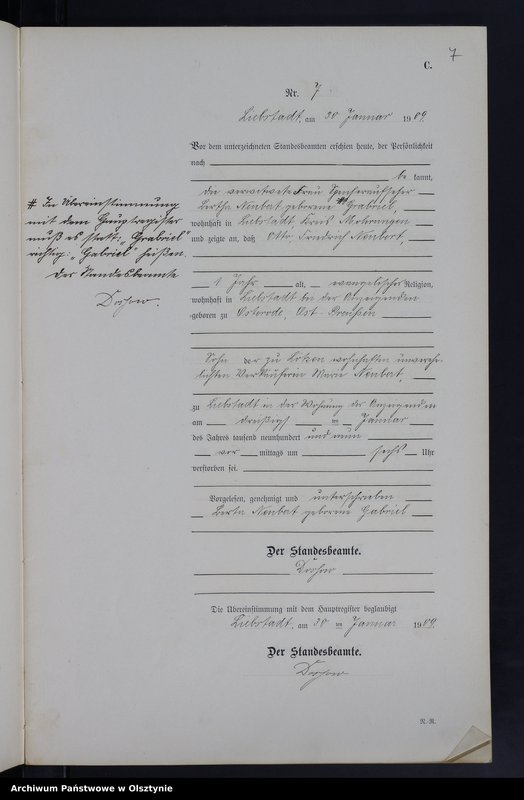 7
C.
Nr. 7
Liebstadt, am 30 Januar 1909.
Vor dem unterzeichneten Standesbeamten erschien heute, der Persönlichkeit
nach
be kannt,
die verwitwete Frau
Bertha Neubat geborene # Grabriel
wohnhaft in Liebstadt Kreis Mohrungen
und zeigte an, daß Otto Friedrich Neubert,
1 Jahr alt, evangelischer Religion,
wohnhaft in Liebstadt bei der Anzeigenden
geboren zu Osterode, Ost-Preußen
Sohn der zu Lötzen wohnhaften unverehe-
lichten Verkäuferin Marie Neubat,
zu Liebstadt in der Wohnung der Anzeigenden
am dreißigsten Januar
des Jahres tausend neunhundert und neun
vor mittags um sechs Uhr
verstorben sei.
Vorgelesen, genehmigt und unterschrieben
Berta Neubat geborene Gabriel
Der Standesbeamte.
Die Übereinstimmung mit dem Hauptregister beglaubigt
Liebstadt, am 30 ten Januar 1909.
Der Standesbeamte.
# In Übereinstimmung
mit dem Hauptregister
muß es statt: „Grabriel"
richtig: „Gabriel" heißen.
Der Standesbeamte
N.-R.
Archiwum Państwowe w Olsztynie